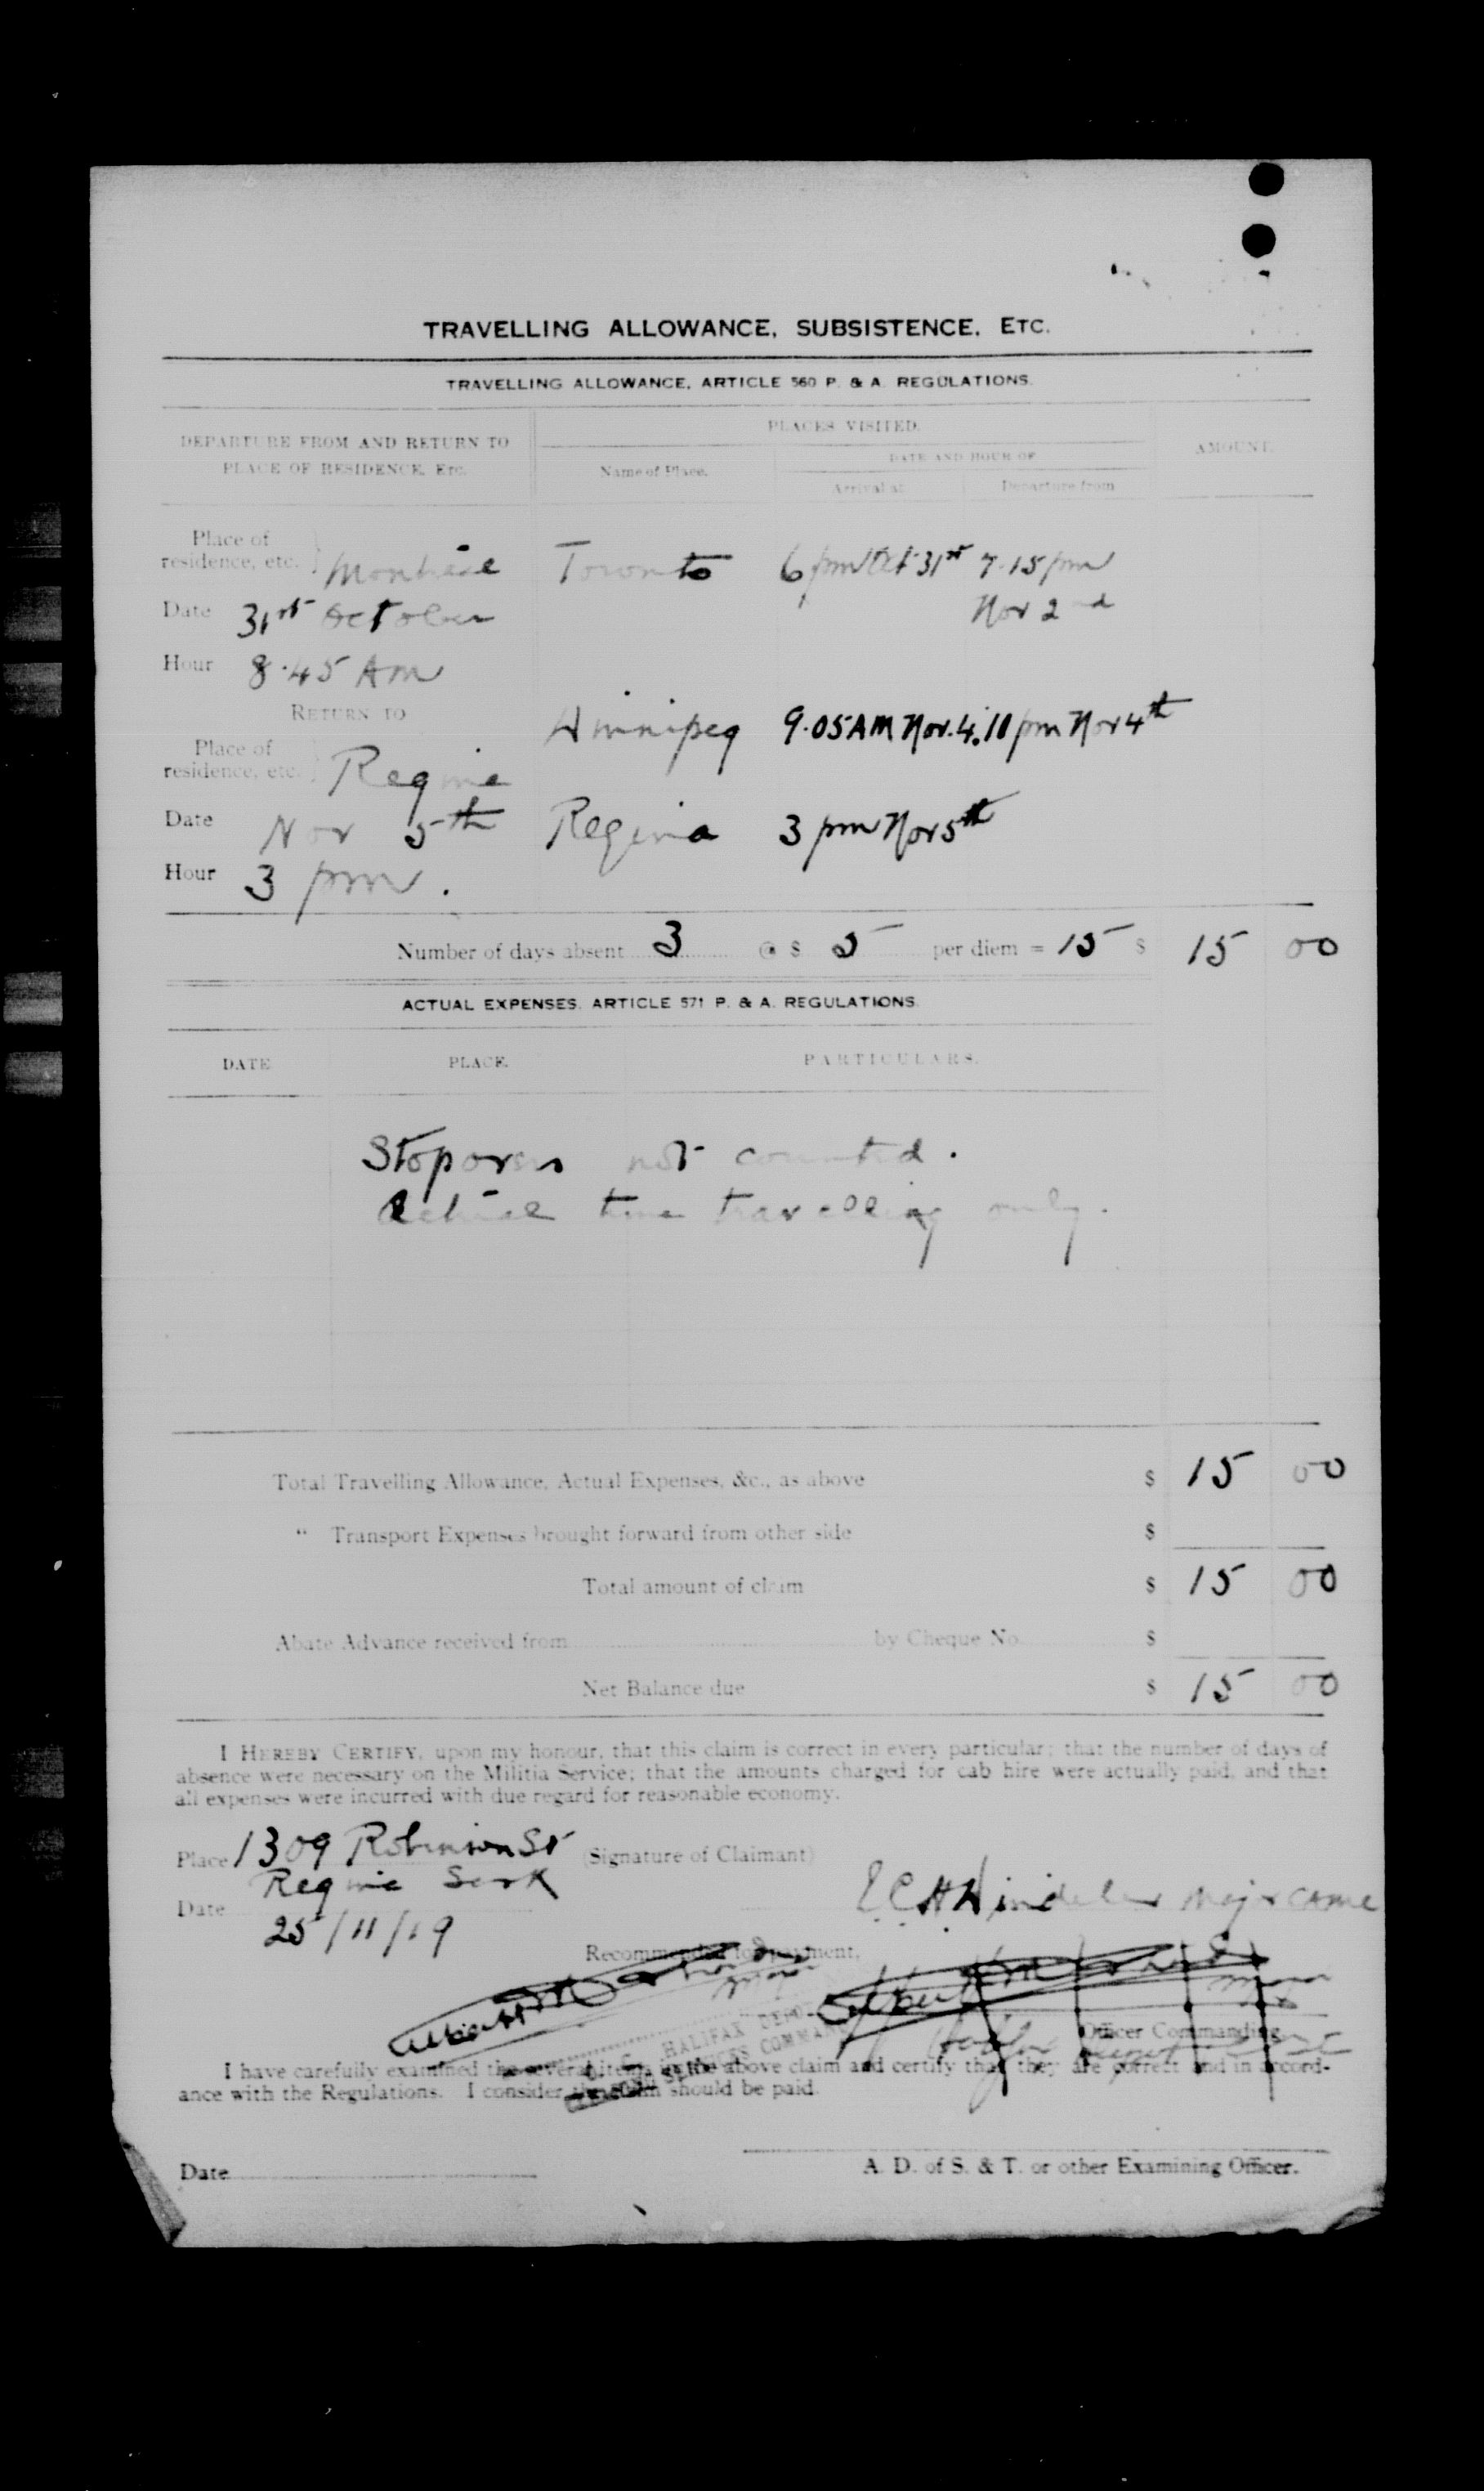 TRAVELLING ALLOWANCE, SUBSISTENCE, ETC.
TRAVELLING ALLOWANCE, ARTICLE 560 P. & A. REGULATIONS.
DEPARTURE FROM AND RETURN TO
PLACE OF RESIDENCE, Etc.
PLACES VISITED.
Name of Place.
DATE AND HOUR OF
Arrival at
Departure from
AMOUNT.
Place of
residence, etc. Montreal Toronto 6 pm Oct 31st 7.15 pm
Nov 2nd
Date 31st October
Hour 8.45 AM
RETURN TO
Winnipeg 9.05 AM Nov. 4. 10 pm Nov 4th
Place of
residence, etc. Regina
Date Nov 5th Regina 3 pm Nov 5th
Hour 3 pm.
Number of days absent 3 @ $ 5 per diem = 15 $ 15 00
ACTUAL EXPENSES. ARTICLE 571 P. & A. REGULATIONS.
DATE PLACE. PARTICULARS.
Stopovers not counted.
Actual time travelling only.
Total Travelling Allowance, Actual Expenses, &c., as above $ 15 00
" Transport Expenses brought forward from other side $
Total amount of claim $ 15 00
Abate Advance received from by Cheque No. $
Net Balance due $ 15 00
I HEREBY CERTIFY, upon my honour, that this claim is correct in every particular; that the number of days of
absence were necessary on the Militia Service; that the amounts charged for cab hire were actually paid, and that
all expenses were incurred with due regard for reasonable economy.
Place 1309 Robinson St (Signature of Claimant)
Regina Sask
Major CAMC
Date 25/11/19
Recommended for payment,
HALIFAX DEPOT
SERVICES COMMAND
Officer Commanding
I have carefully examined the several items in the above claim and certify that they are correct and in accord-
ance with the Regulations. I consider the claim should be paid.
Date
A. D. of S. & T. or other Examining Officer.